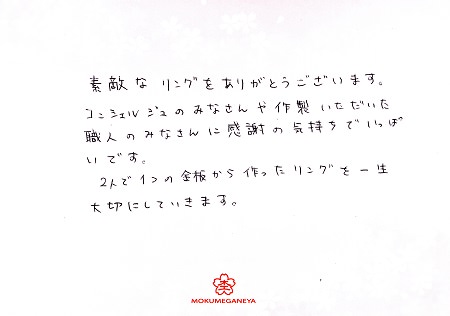 素敵な リングをありがとうございます。
コンシェルジュのみなさんや作製いただいた
職人のみなさんに感謝の気持ちでいっぱ
いです。
2人で1つの金板から作ったリングを一生
大切にしていきます。
杢
MOKUMEGANEYA